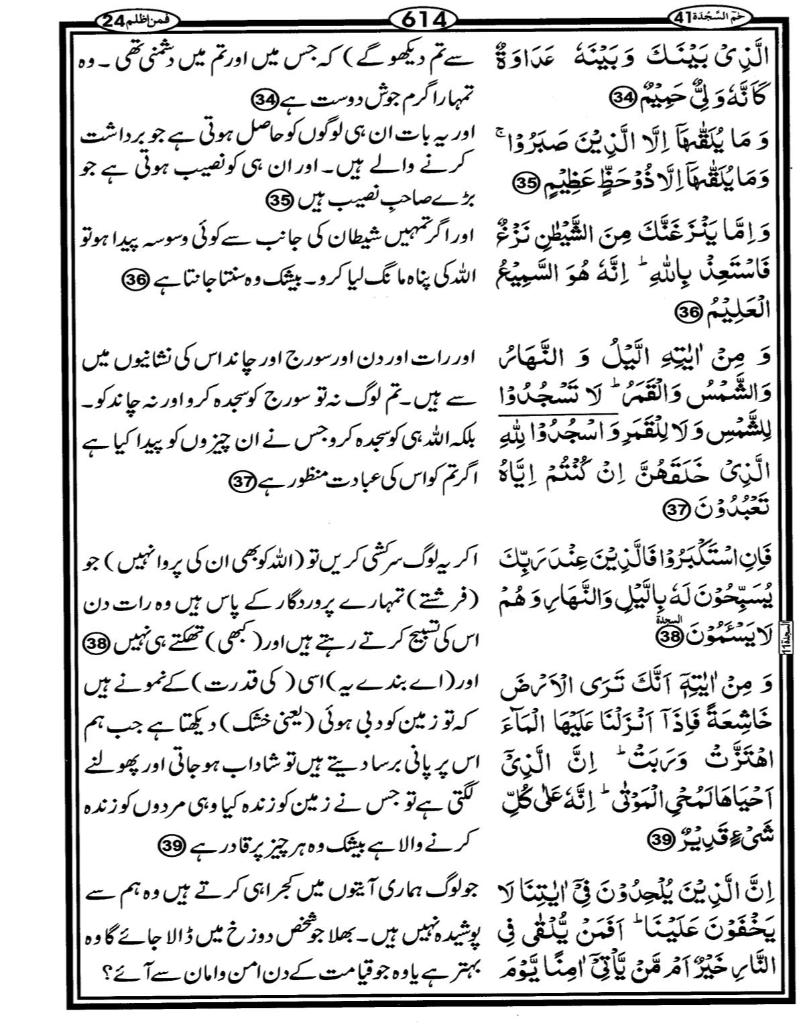 حٰمٓ السَّجْدَة 41
614
فمن اظلم 24
الَّذِىْ بَيْنَكَ وَبَيْنَهٗ عَدَاوَةٌ
كَاَنَّهٗ وَلِىٌّ حَمِيْمٌ 34
وَ مَا يُلَقّٰىهَاۤ اِلَّا الَّذِيْنَ صَبَرُوْا ۚ
وَمَا يُلَقّٰىهَاۤ اِلَّا ذُوْ حَظٍّ عَظِيْمٍ 35
وَاِمَّا يَنْزَغَنَّكَ مِنَ الشَّيْطٰنِ نَزْغٌ
فَاسْتَعِذْ بِاللّٰهِ ؕ اِنَّهٗ هُوَ السَّمِيْعُ
الْعَلِيْمُ 36
وَ مِنْ اٰيٰتِهِ الَّيْلُ وَ النَّهَارُ
وَالشَّمْسُ وَالْقَمَرُ ؕ لَا تَسْجُدُوْا
لِلشَّمْسِ وَلَا لِلْقَمَرِ وَاسْجُدُوْا لِلّٰهِ
الَّذِىْ خَلَقَهُنَّ اِنْ كُنْتُمْ اِيَّاهُ
تَعْبُدُوْنَ 37
فَاِنِ اسْتَكْبَرُوْا فَالَّذِيْنَ عِنْدَ رَبِّكَ
يُسَبِّحُوْنَ لَهٗ بِالَّيْلِ وَالنَّهَارِ وَهُمْ
لَا يَسْـَٔمُوْنَ السجدة 38
وَ مِنْ اٰيٰتِهٖۤ اَنَّكَ تَرَى الْاَرْضَ
خَاشِعَةً فَاِذَاۤ اَنْزَلْنَا عَلَيْهَا الْمَآءَ
اهْتَزَّتْ وَرَبَتْ ؕ اِنَّ الَّذِىْۤ
اَحْيَاهَا لَمُحْىِ الْمَوْتٰى ؕ اِنَّهٗ عَلٰى كُلِّ
شَىْءٍ قَدِيْرٌ 39
اِنَّ الَّذِيْنَ يُلْحِدُوْنَ فِىْۤ اٰيٰتِنَا لَا
يَخْفَوْنَ عَلَيْنَا ؕ اَفَمَنْ يُّلْقٰى فِى
النَّارِ خَيْرٌ اَمْ مَّنْ يَّاْتِىْۤ اٰمِنًا يَّوْمَ
سے تم دیکھو گے) کہ جس میں اور تم میں دشمنی تھی ۔ وہ
تمہارا گرم جوش دوست ہے 34
اور یہ بات ان ہی لوگوں کو حاصل ہوتی ہے جو برداشت
کرنے والے ہیں۔ اور ان ہی کو نصیب ہوتی ہے جو
بڑے صاحبِ نصیب ہیں 35
اور اگر تمہیں شیطان کی جانب سے کوئی وسوسہ پیدا ہو تو
اللہ کی پناہ مانگ لیا کرو۔ بیشک وہ سنتا جانتا ہے 36
اور رات اور دن اور سورج اور چاند اس کی نشانیوں میں
سے ہیں۔ تم لوگ نہ تو سورج کو سجدہ کرو اور نہ چاند کو۔
بلکہ اللہ ہی کو سجدہ کرو جس نے ان چیزوں کو پیدا کیا ہے
اگر تم کو اس کی عبادت منظور ہے 37
اگر یہ لوگ سرکشی کریں تو (اللہ کو بھی ان کی پروا نہیں) جو
(فرشتے) تمہارے پروردگار کے پاس ہیں وہ رات دن
اس کی تسبیح کرتے رہتے ہیں اور (کبھی) تھکتے ہی نہیں 38
اور (اے بندے یہ) اسی (کی قدرت) کے نمونے ہیں
کہ تو زمین کو دبی ہوئی (یعنی خشک) دیکھتا ہے جب ہم
اس پر پانی برسا دیتے ہیں تو شاداب ہو جاتی اور پھولنے
لگتی ہے تو جس نے زمین کو زندہ کیا وہی مردوں کو زندہ
کرنے والا ہے بیشک وہ ہر چیز پر قادر ہے 39
جو لوگ ہماری آیتوں میں کجراہی کرتے ہیں وہ ہم سے
پوشیدہ نہیں ہیں۔ بھلا جو شخص دوزخ میں ڈالا جائے گا وہ
بہتر ہے یا وہ جو قیامت کے دن امن و امان سے آئے؟
السجدة 11